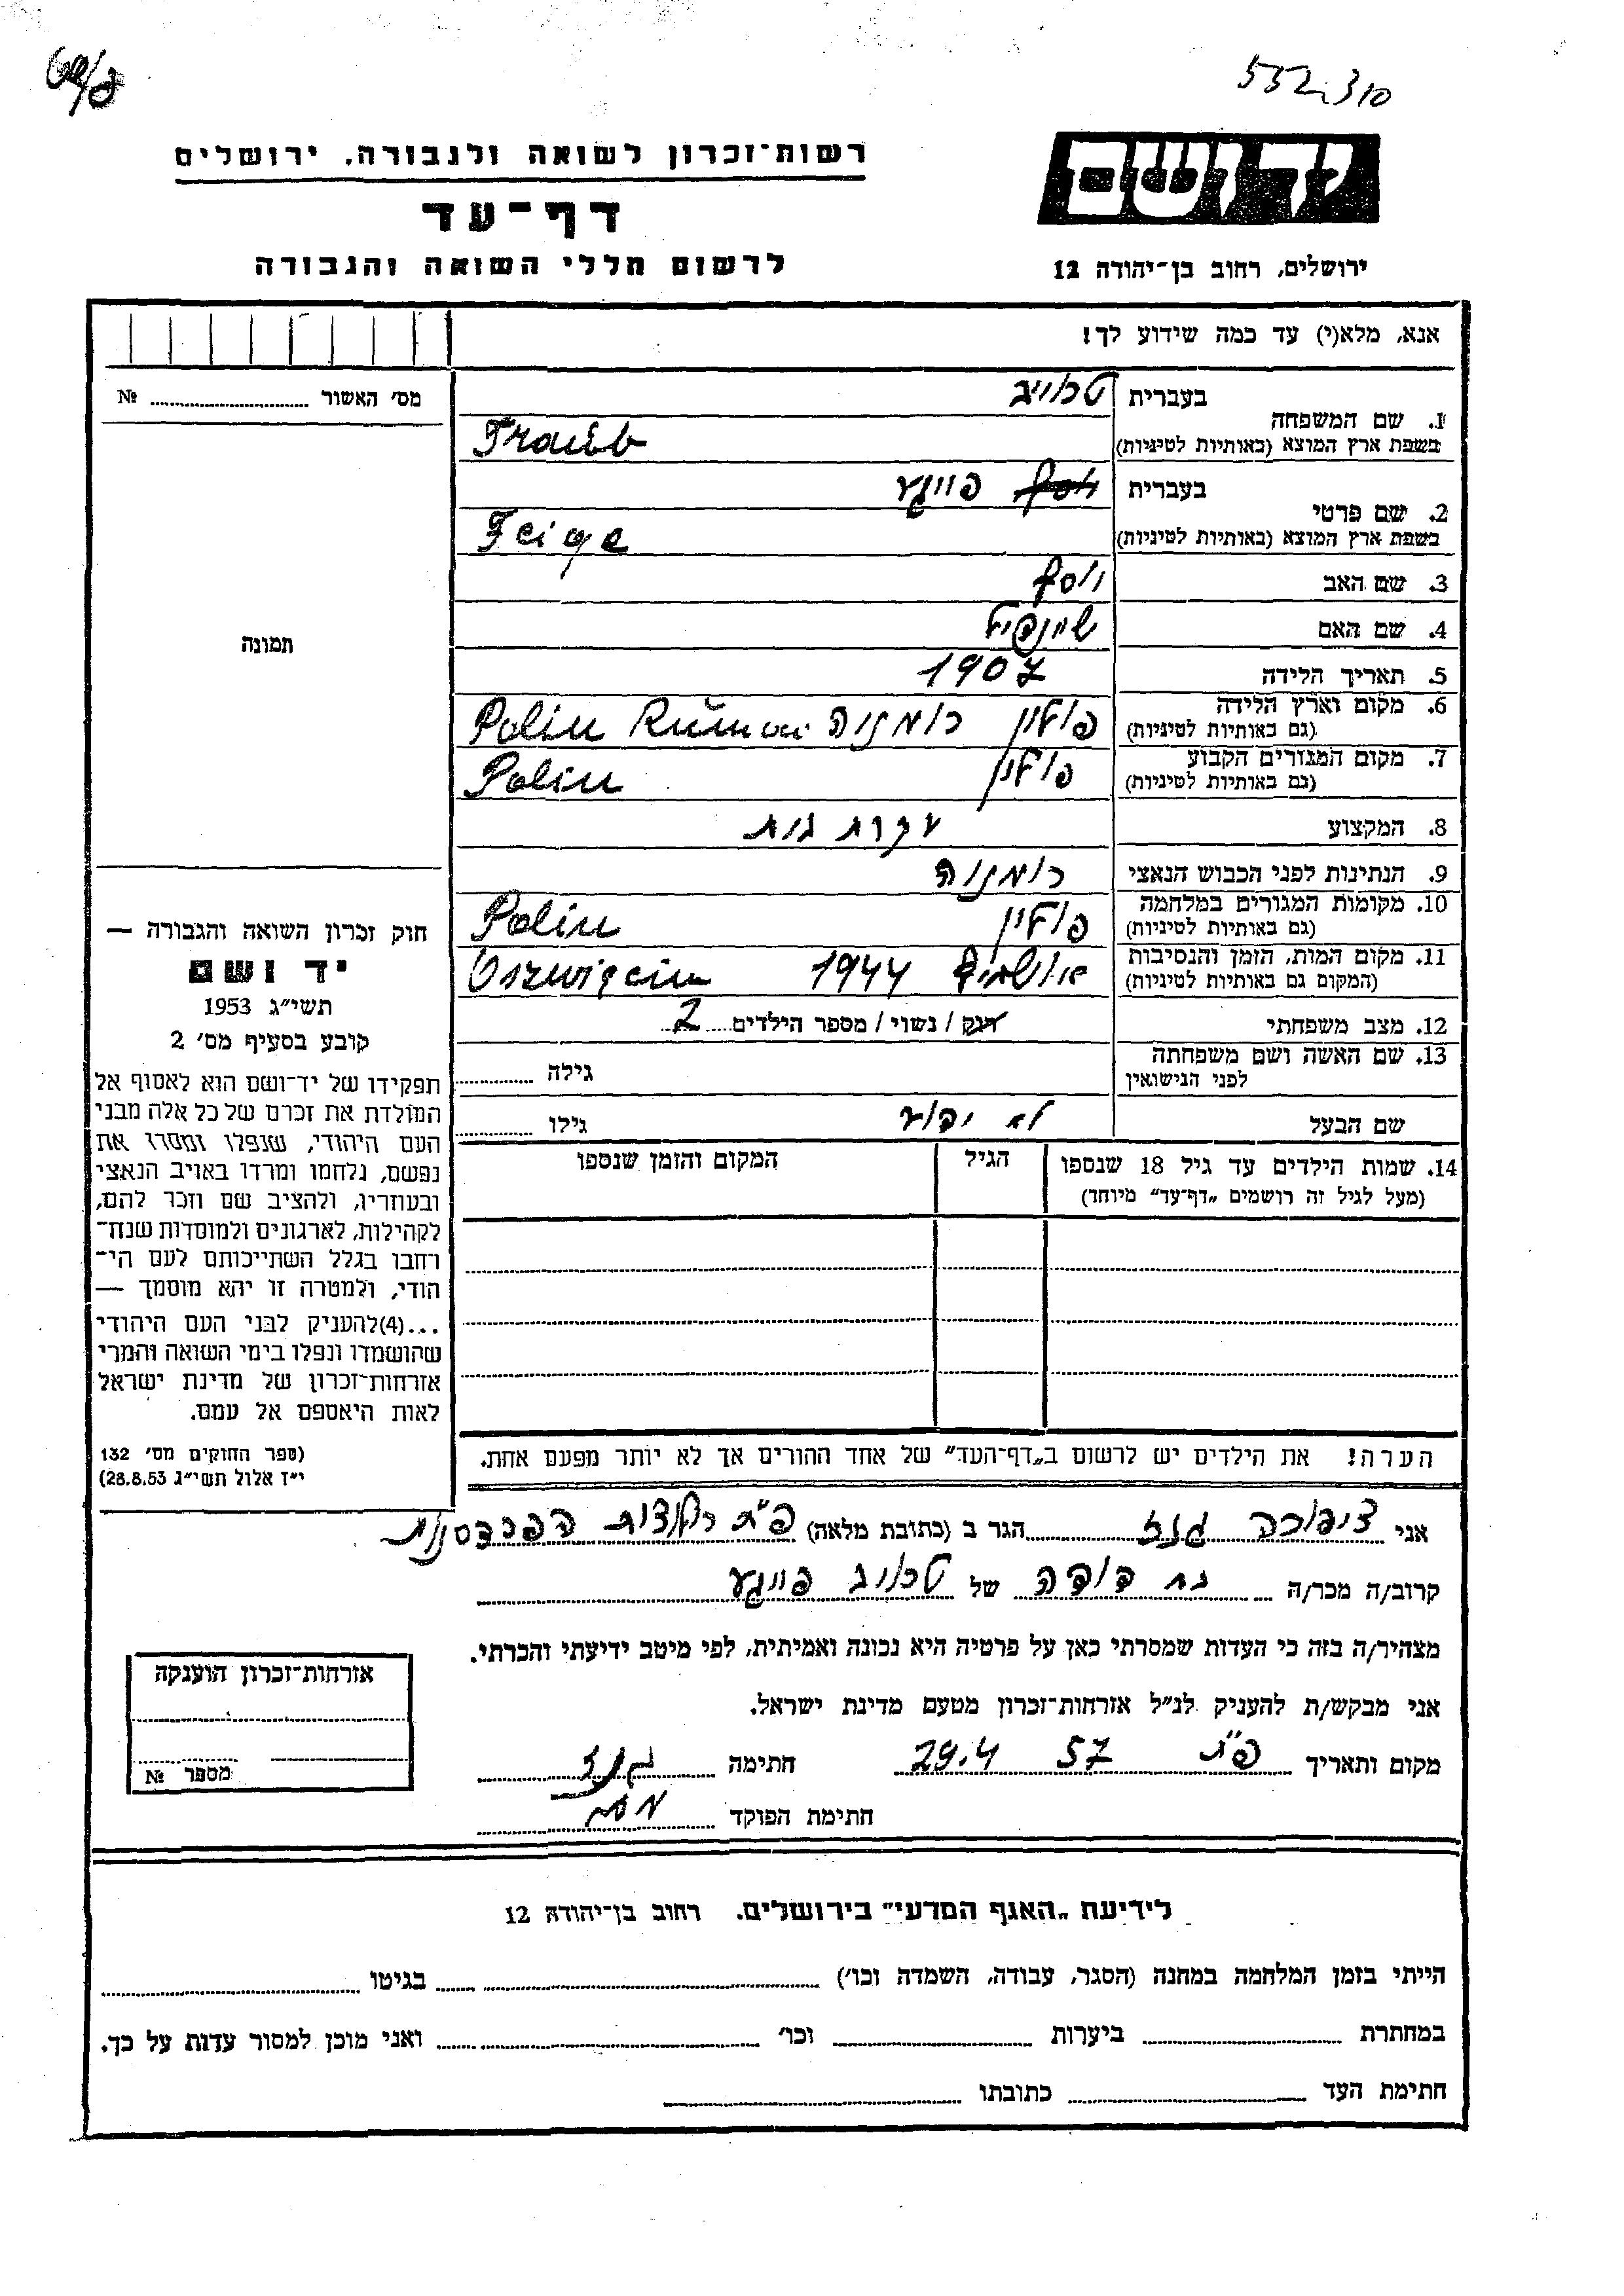 69/8
552310
יד ושם
רשות־זכרון לשואה ולגבורה, ירושלים
דף־עד
לרשום חללי השואה והגבורה
ירושלים, רחוב בן־יהודה 12
אנא, מלא(י) עד כמה שידוע לך!
מס' האשור ........ №
תמונה
חוק זכרון השואה והגבורה —
יד ושם
תשי״ג 1953
קובע בסעיף מס׳ 2
תפקידו של יד־ושם הוא לאסוף אל
המולדת את זכרם של כל אלה מבני
העם היהודי, שנפלו ומסרו את
נפשם, נלחמו ומרדו באויב הנאצי
ובעוזריו, ולהציב שם וזכר להם,
לקהילות, לארגונים ולמוסדות שנח־
רחבו בגלל השתייכותם לעם הי־
הודי, ולמטרה זו יהא מוסמך —
...(4)להעניק לבני העם היהודי
שהושמדו ונפלו בימי השואה והמרי
אזרחות־זכרון של מדינת ישראל
לאות היאספם אל עמם.
(ספר החוקים מס׳ 132
י״ז אלול תשי״ג 28.8.53)
1. שם המשפחה בעברית טראויב
בשפת ארץ המוצא (באותיות לטיניות) Traub
2. שם פרטי בעברית יוסף פייגע
בשפת ארץ המוצא (באותיות לטיניות) Feige
3. שם האב יוסף
4. שם האם
5. תאריך הלידה 1907
6. מקום וארץ הלידה פולין רומניה
(גם באותיות לטיניות) Polin
7. מקום המגורים הקבוע פולין
(גם באותיות לטיניות) Polin
8. המקצוע עקרת בית
9. הנתינות לפני הכבוש הנאצי רומניה
10. מקומות המגורים במלחמה פולין
(גם באותיות לטיניות) Polin
11. מקום המות, הזמן והנסיבות 1944
(המקום גם באותיות לטיניות) Oszwięcim
12. מצב משפחתי רוק / נשוי / מספר הילדים 2
13. שם האשה ושם משפחתה
לפני הנישואין גילה
שם הבעל לא ידוע גילו
14. שמות הילדים עד גיל 18 שנספו הגיל המקום והזמן שנספו
(מעל לגיל זה רושמים „דף־עד״ מיוחד)
הערה! את הילדים יש לרשום ב„דף־העד״ של אחד ההורים אך לא יותר מפעם אחת.
אני ציפורה גנז הגר ב (כתובת מלאה) פ״ת
קרוב/ה מכר/ה בת דודה של טראויב פייגע
מצהיר/ה בזה כי העדות שמסרתי כאן על פרטיה היא נכונה ואמיתית, לפי מיטב ידיעתי והכרתי.
אני מבקש/ת להעניק לנ״ל אזרחות־זכרון מטעם מדינת ישראל.
מקום ותאריך פ״ת 29.4 57 חתימה גנז
חתימת הפוקד
אזרחות־זכרון הוענקה
מספר №
לידיעת „האגף המדעי״ בירושלים. רחוב בן־יהודה 12
הייתי בזמן המלחמה במחנה (הסגר, עבודה, השמדה וכו׳) בגיטו
במחתרת ביערות וכו׳ ואני מוכן למסור עדות על כך.
חתימת העד כתובתו